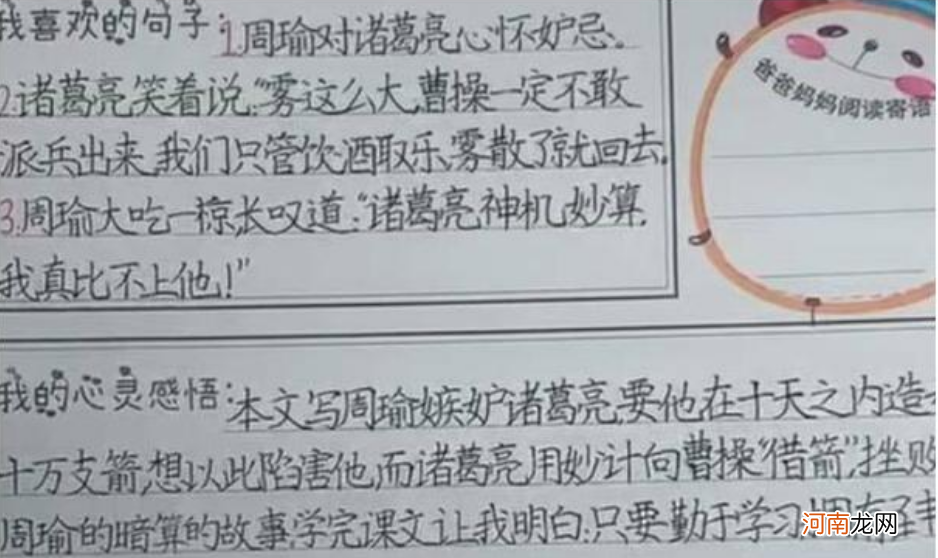 我喜欢的句子:1.周瑜对诸葛亮心怀妒忌。
2.诸葛亮笑着说:“雾这么大,曹操一定不敢
派兵出来,我们只管饮酒取乐,雾散了就回去。
3.周瑜大吃一惊,长叹道:“诸葛亮神机妙算,
我真比不上他!”
爸爸妈妈阅读寄语
我的心灵感悟:本文写周瑜嫉妒诸葛亮,要他在十天之内造
十万支箭,想以此陷害他,而诸葛亮用妙计向曹操“借箭”,挫败
周瑜的暗算的故事,学完课文让我明白:只要勤于学习
河南龙网